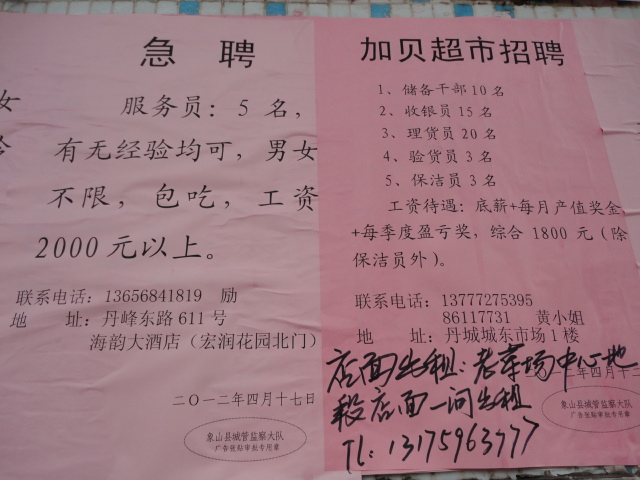 女
急 聘
服务员：5 名，
有无经验均可，男女
不限，包吃，工资
2000 元以上。
联系电话：13656841819 励
地 址：丹峰东路 611 号
海韵大酒店（宏润花园北门）
二〇一二年四月十七日
象山县城管监察大队
广告张贴审批专用章
加贝超市招聘
1、储备干部 10 名
2、收银员 15 名
3、理货员 20 名
4、验货员 3 名
5、保洁员 3 名
工资待遇：底薪+每月产值奖金
+每季度盈亏奖，综合 1800 元（除
保洁员外）。
联系电话：13777275395
86117731 黄小姐
地 址：丹城城东市场 1 楼
店面出租：老菜场中心地
段店面一间出租
TL：13175963777
年四月十二
象山县城管监察大队
广告张贴审批专用章